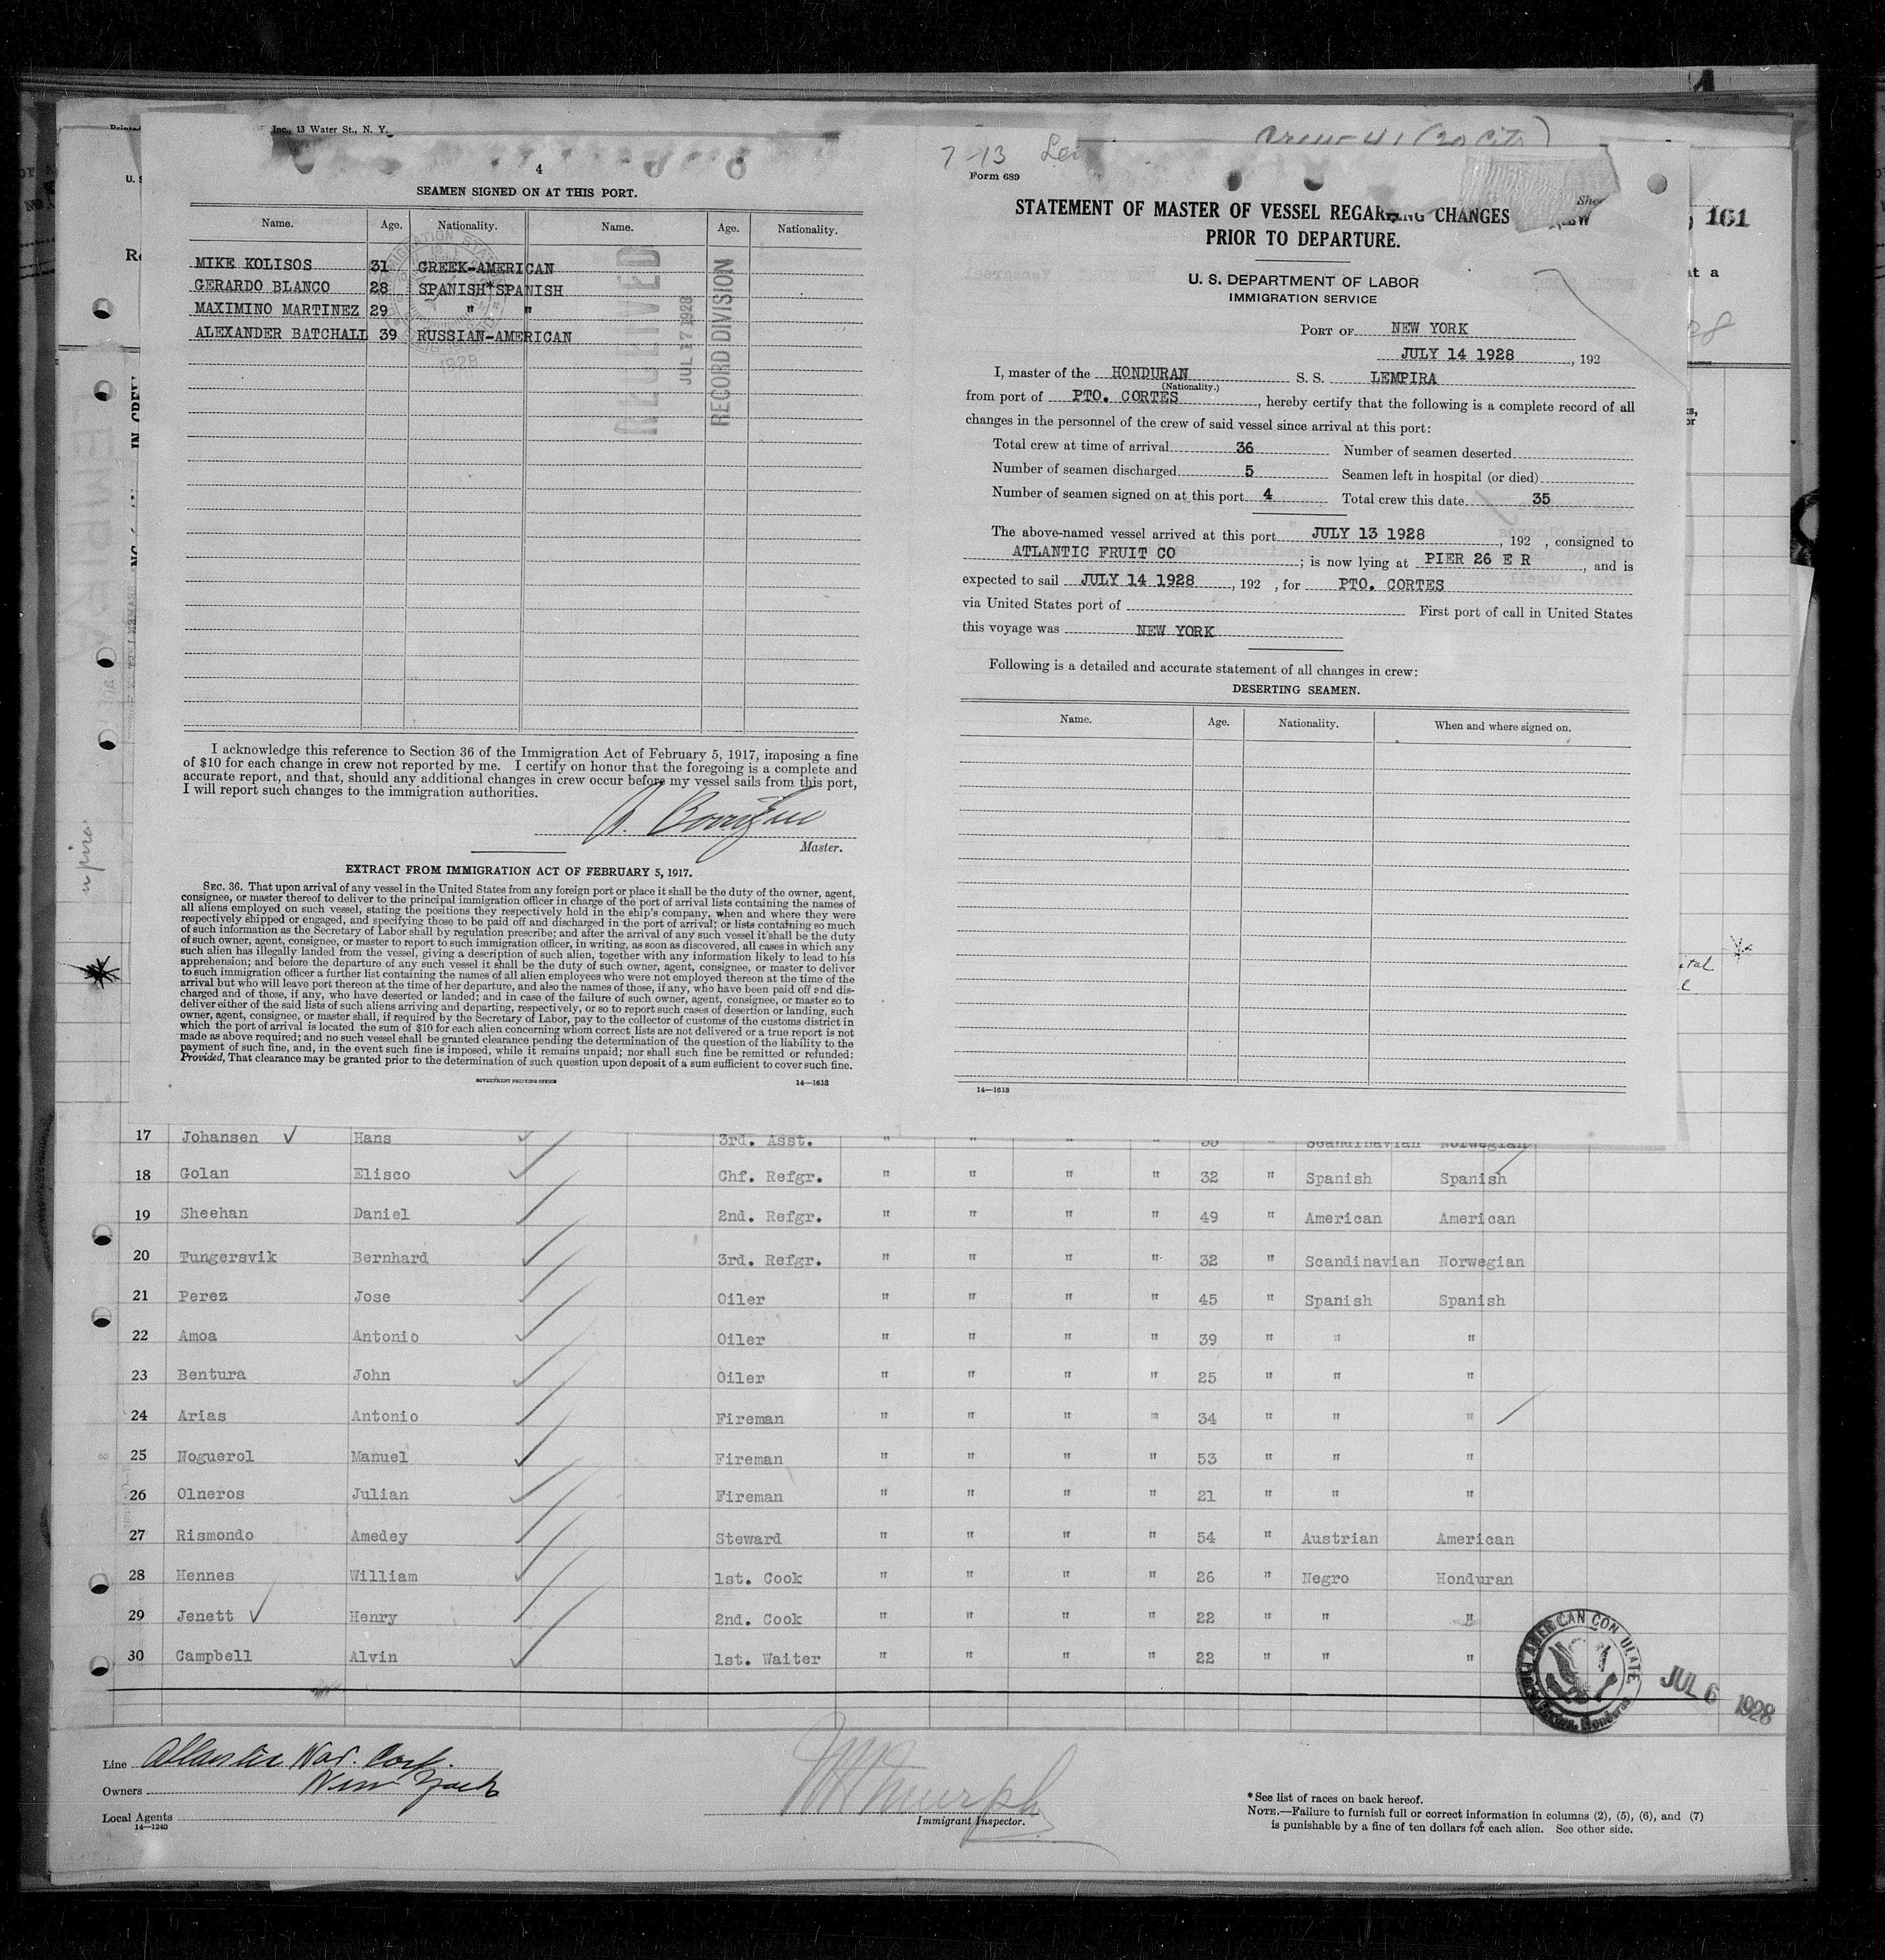 Inc., 13 Water St., N. Y.
4
SEAMEN SIGNED ON AT THIS PORT.
Name. Age. Nationality. Name. Age. Nationality.
MIKE KOLISOS 31 GREEK-AMERICAN
GERARDO BLANCO 28 SPANISH*SPANISH
MAXIMINO MARTINEZ 29 " "
ALEXANDER BATCHALL 39 RUSSIAN-AMERICAN
1928
RECEIVED
JUL 17 1928
RECORD DIVISION
I acknowledge this reference to Section 36 of the Immigration Act of February 5, 1917, imposing a fine
of $10 for each change in crew not reported by me. I certify on honor that the foregoing is a complete and
accurate report, and that, should any additional changes in crew occur before my vessel sails from this port,
I will report such changes to the immigration authorities.
Master.
EXTRACT FROM IMMIGRATION ACT OF FEBRUARY 5, 1917.
SEC. 36. That upon arrival of any vessel in the United States from any foreign port or place it shall be the duty of the owner, agent,
consignee, or master thereof to deliver to the principal immigration officer in charge of the port of arrival lists containing the names of
all aliens employed on such vessel, stating the positions they respectively hold in the ship's company, when and where they were
respectively shipped or engaged, and specifying those to be paid off and discharged in the port of arrival; or lists containing so much
of such information as the Secretary of Labor shall by regulation prescribe; and after the arrival of any such vessel it shall be the duty
of such owner, agent, consignee, or master to report to such immigration officer, in writing, as soon as discovered, all cases in which any
such alien has illegally landed from the vessel, giving a description of such alien, together with any information likely to lead to his
apprehension; and before the departure of any such vessel it shall be the duty of such owner, agent, consignee, or master to deliver
to such immigration officer a further list containing the names of all alien employees who were not employed thereon at the time of the
arrival but who will leave port thereon at the time of her departure, and also the names of those, if any, who have been paid off and dis-
charged and of those, if any, who have deserted or landed; and in case of the failure of such owner, agent, consignee, or master so to
deliver either of the said lists of such aliens arriving and departing, respectively, or so to report such cases of desertion or landing, such
owner, agent, consignee, or master shall, if required by the Secretary of Labor, pay to the collector of customs of the customs district in
which the port of arrival is located the sum of $10 for each alien concerning whom correct lists are not delivered or a true report is not
made as above required; and no such vessel shall be granted clearance pending the determination of the question of the liability to the
payment of such fine, and, in the event such fine is imposed, while it remains unpaid; nor shall such fine be remitted or refunded:
Provided, That clearance may be granted prior to the determination of such question upon deposit of a sum sufficient to cover such fine.
GOVERNMENT PRINTING OFFICE 14—1613
7-13
Form 689
161
STATEMENT OF MASTER OF VESSEL REGARDING CHANGES
PRIOR TO DEPARTURE.
U. S. DEPARTMENT OF LABOR
IMMIGRATION SERVICE
PORT OF NEW YORK
JULY 14 1928, 192
I, master of the HONDURAN S. S. LEMPIRA
(Nationality.)
from port of PTO. CORTES, hereby certify that the following is a complete record of all
changes in the personnel of the crew of said vessel since arrival at this port:
Total crew at time of arrival 36 Number of seamen deserted
Number of seamen discharged 5 Seamen left in hospital (or died)
Number of seamen signed on at this port 4 Total crew this date 35
The above-named vessel arrived at this port JULY 13 1928, 192 , consigned to
ATLANTIC FRUIT CO ; is now lying at PIER 26 E R, and is
expected to sail JULY 14 1928, 192 , for PTO. CORTES
via United States port of First port of call in United States
this voyage was NEW YORK
Following is a detailed and accurate statement of all changes in crew:
DESERTING SEAMEN.
Name. Age. Nationality. When and where signed on.
14—1613
17 Johansen Hans 3rd. Asst. " " " " " Scandinavian Norwegian
18 Golan Elisco Chf. Refgr. " " " " 32 " Spanish Spanish
19 Sheehan Daniel 2nd. Refgr. " " " " 49 " American American
20 Tungersvik Bernhard 3rd. Refgr. " " " " 32 " Scandinavian Norwegian
21 Perez Jose Oiler " " " " 45 " Spanish Spanish
22 Amoa Antonio Oiler " " " " 39 " " "
23 Bentura John Oiler " " " " 25 " " "
24 Arias Antonio Fireman " " " " 34 " " "
25 Noguerol Manuel Fireman " " " " 53 " " "
26 Olneros Julian Fireman " " " " 21 " " "
27 Rismondo Amedey Steward " " " " 54 " Austrian American
28 Hennes William 1st. Cook " " " " 26 " Negro Honduran
29 Jenett Henry 2nd. Cook " " " " 22 " " "
30 Campbell Alvin 1st. Waiter " " " " 22 " " "
AMERICAN CONSULATE
JUL 6 1928
Line Atlantic Nav. Corp.
Owners New York
Local Agents
14—1240
Immigrant Inspector.
*See list of races on back hereof.
NOTE.—Failure to furnish full or correct information in columns (2), (5), (6), and (7)
is punishable by a fine of ten dollars for each alien. See other side.